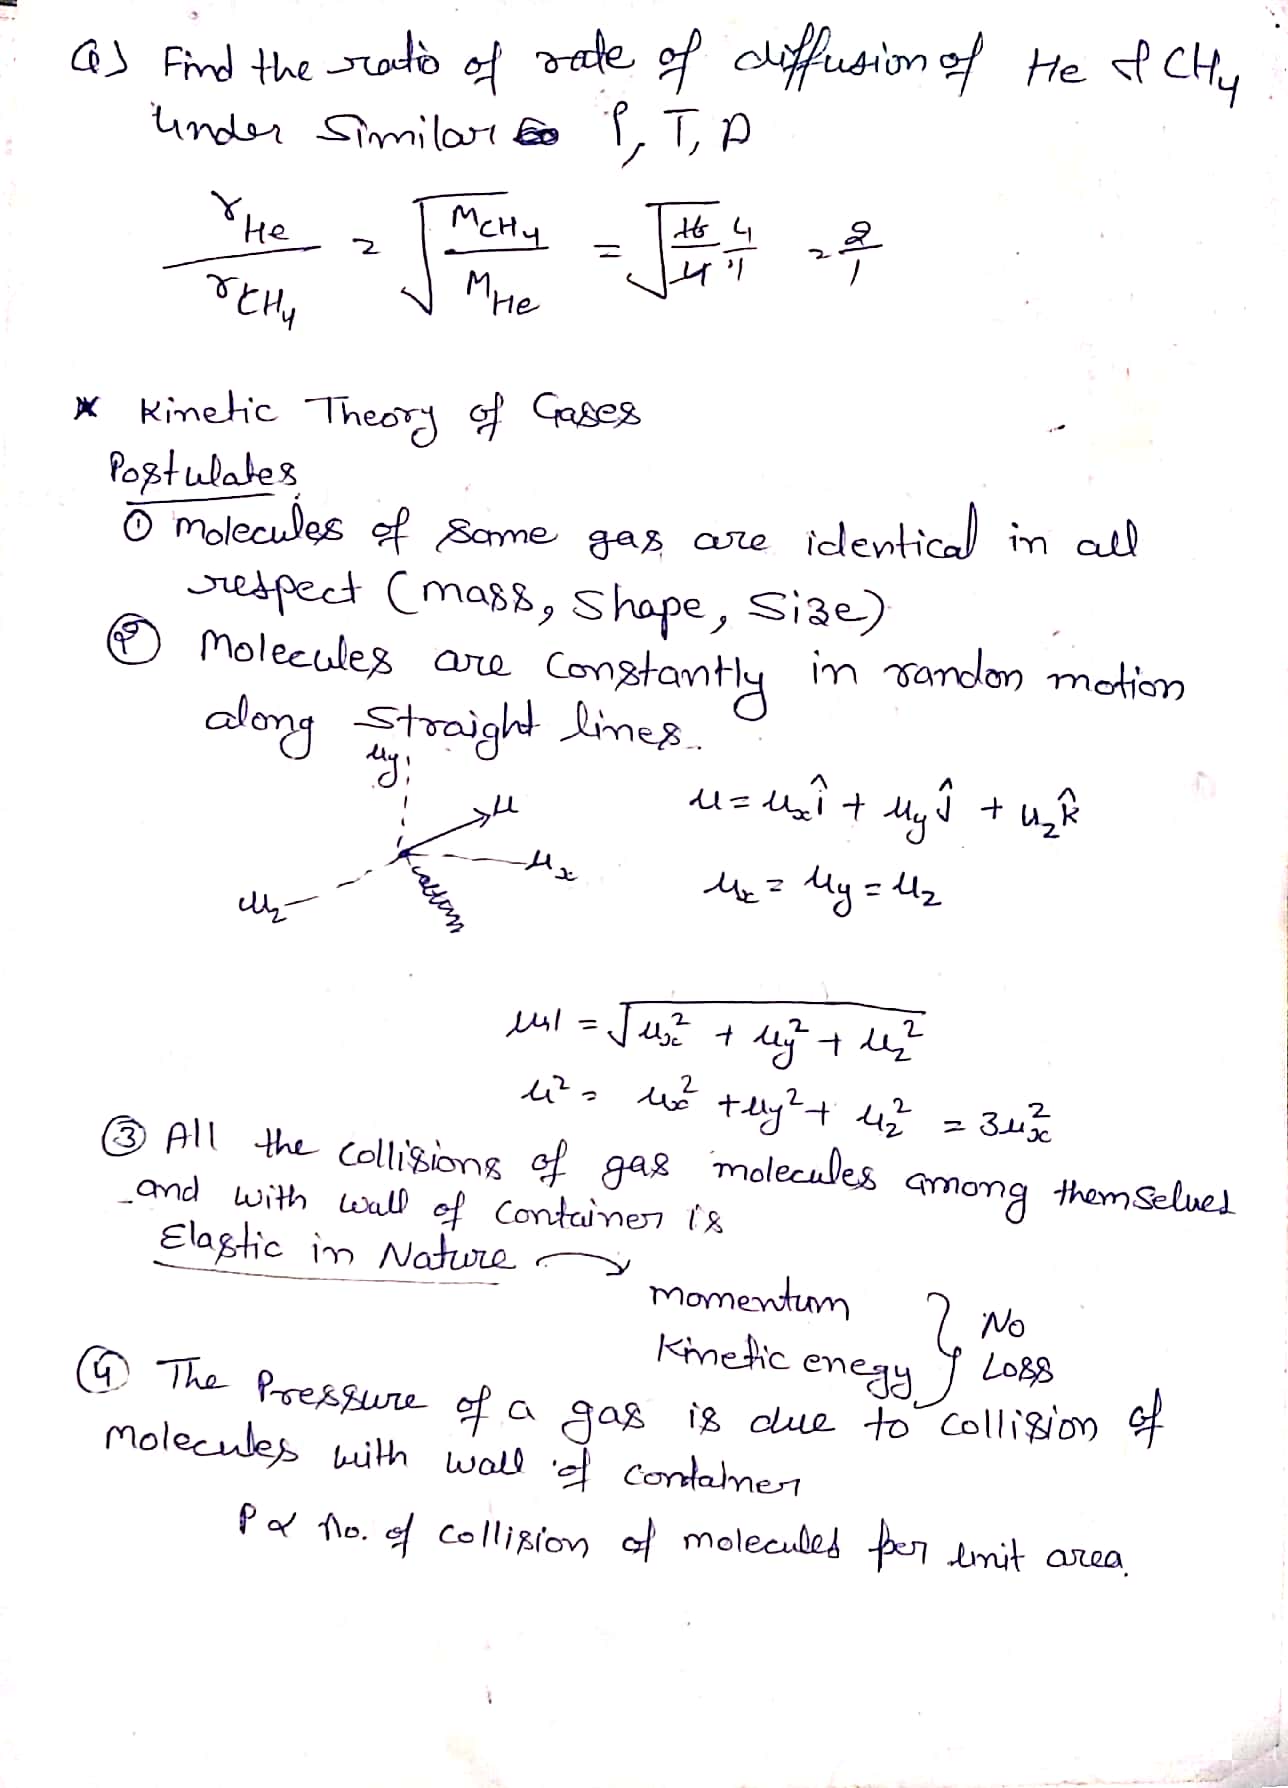 Q) Find the ratio of rate of diffusion of He & CH4
Under Similar P, T, A
rHe / rCH4 = √(MCH4 / MHe) = √(16/4 4/1) = 2/1
* Kinetic Theory of Gases
Postulates
① Molecules of same gas are identical in all
respect (mass, Shape, Size)
② Molecules are constantly in randon motion
along straight lines.
uy
u
ux
uz
u = uxî + uyĵ + uzk̂
ux = uy = uz
|u| = √(ux² + uy² + uz²)
u² = ux² + uy² + uz² = 3ux²
③ All the collisions of gas molecules among themselves
and with wall of container is
Elastic in Nature → momentum
Kinetic enegy } No Loss
④ The Pressure of a gas is due to collision of
molecules with wall of container
P ∝ No. of collision of molecules per unit area.